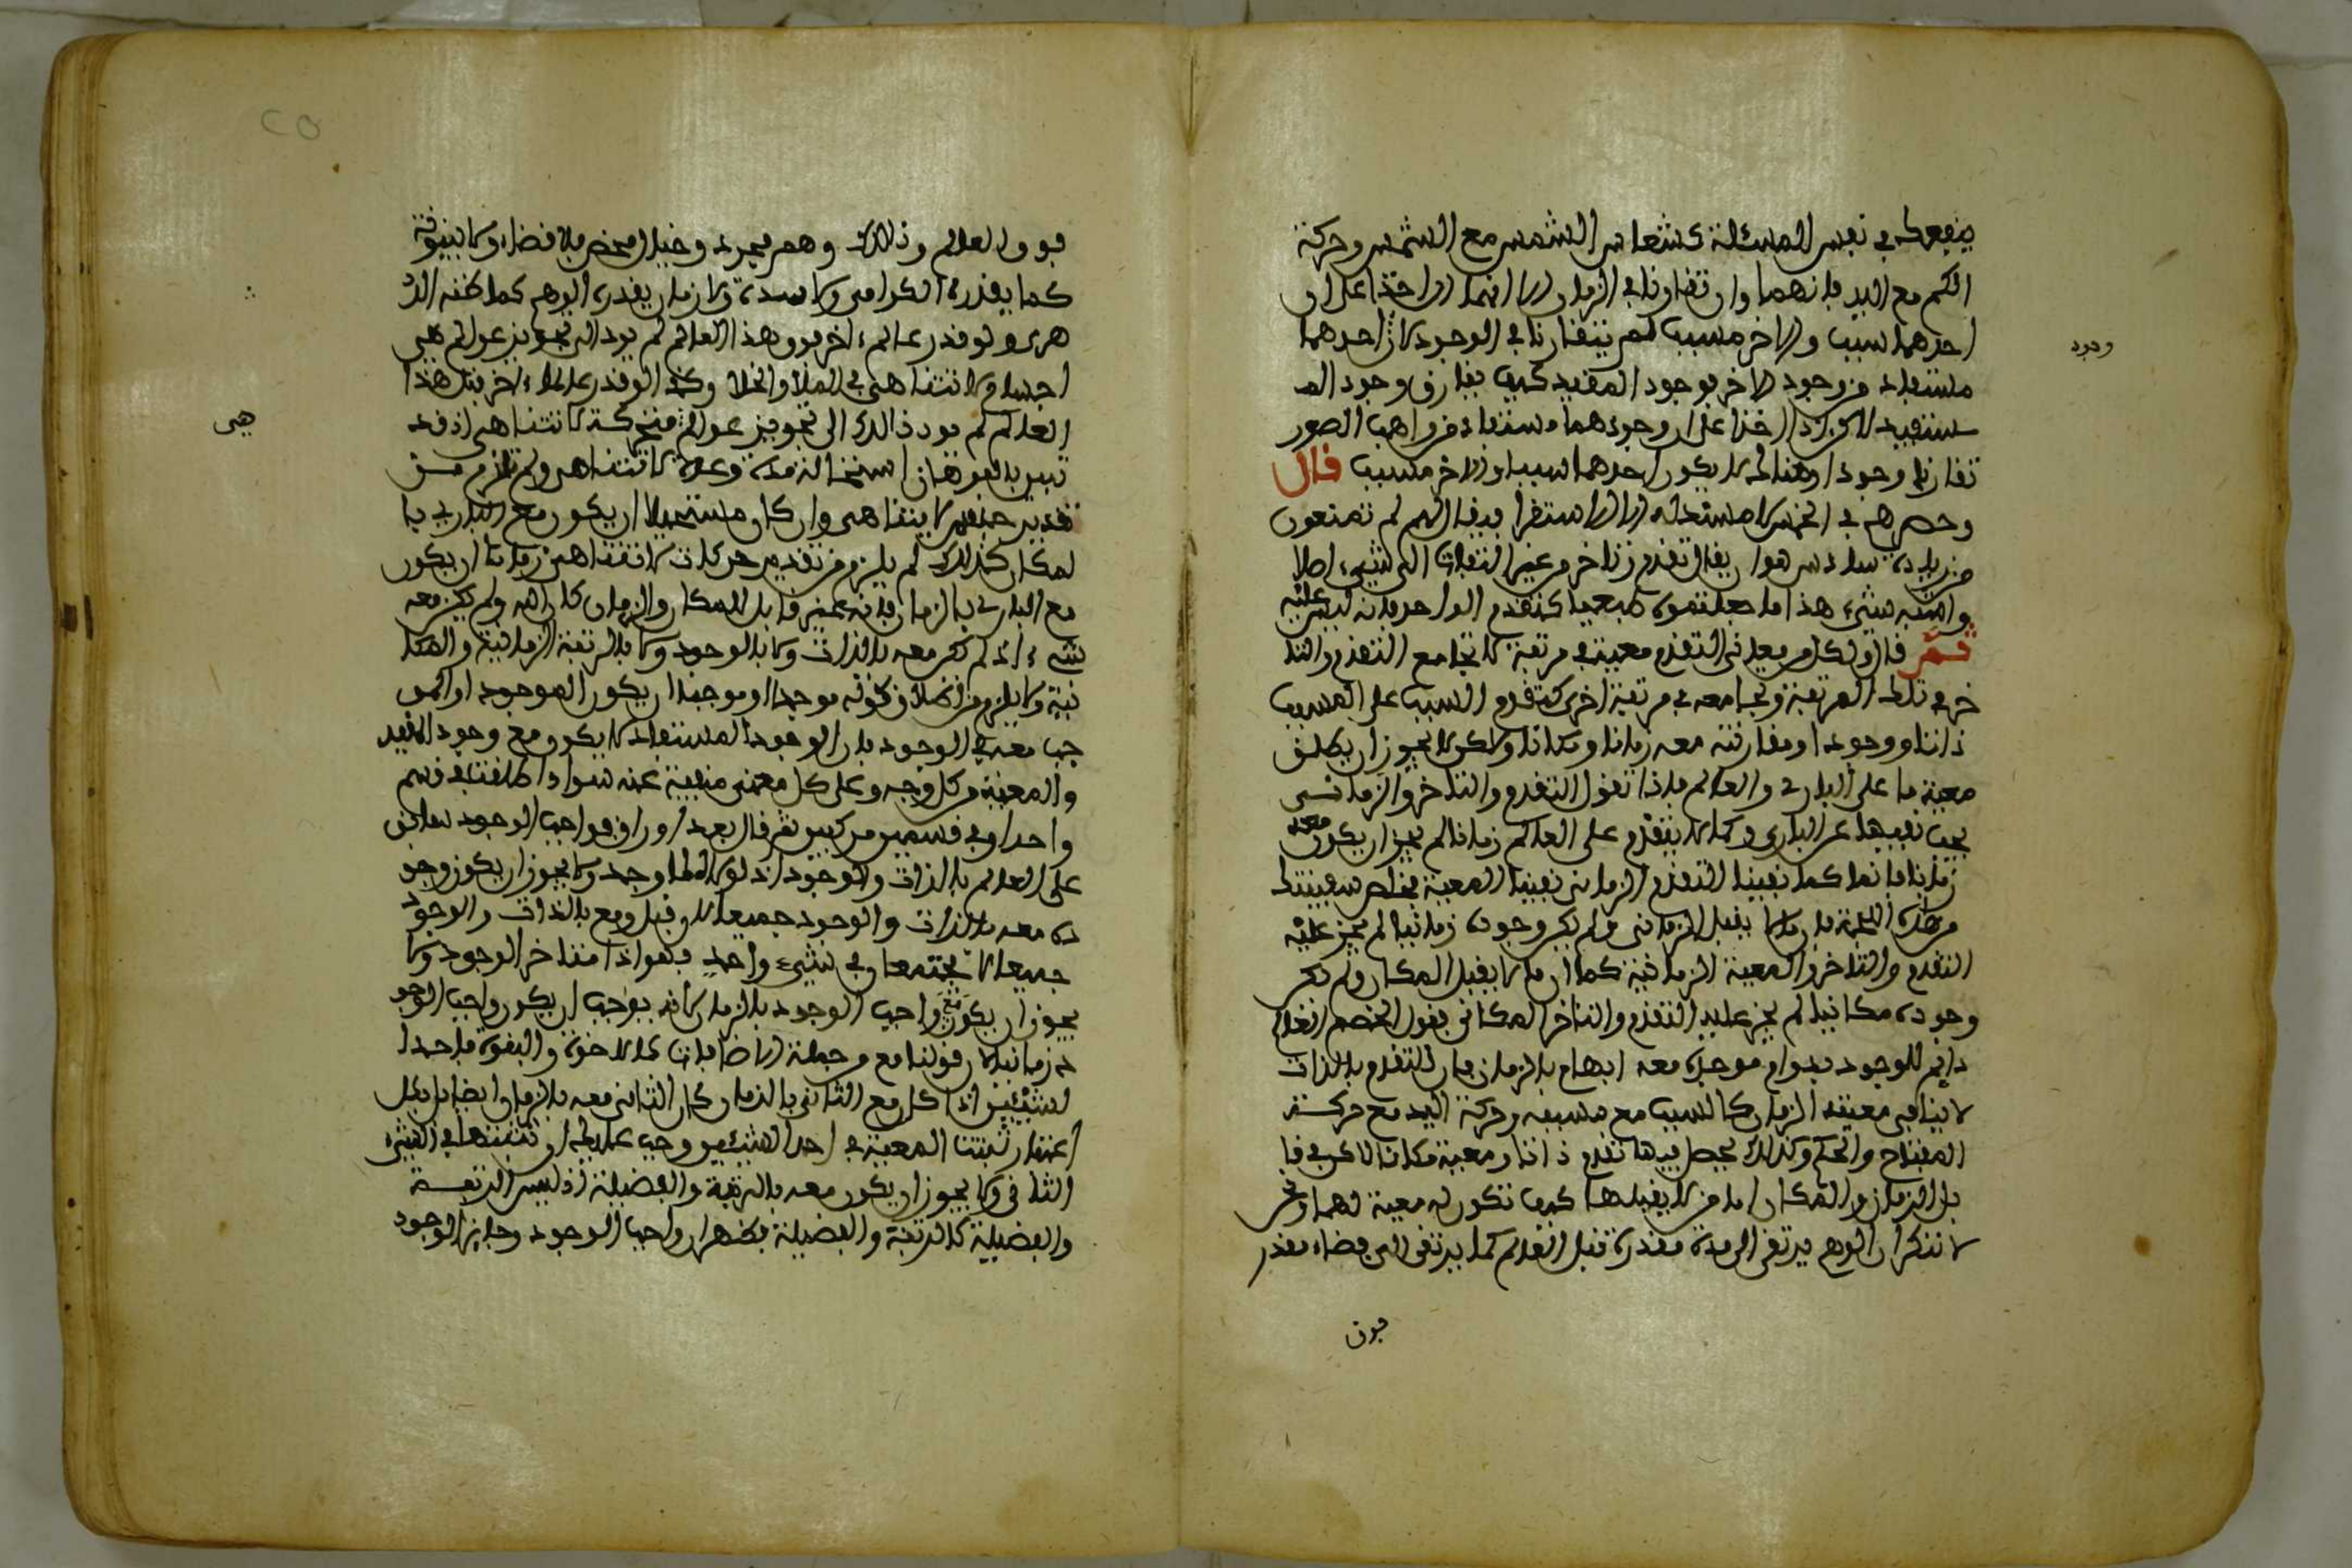 ينفعك في نفس المسئلة كشعاع الشمس مع الشمس وحركة
الكم مع اليد فانهما وان تقارنا في الزمان الا انهما اذا اخذا على ان
احدهما سبب والاخر مسبب لم يتقارنا في الوجود لان احدهما
وجود
مستفاد من وجود الاخر فوجود المفيد كيف يقارن وجود الم
ستفيد لاكن اذا اخذا على ان وجودهما مستفاد من واهب الصور
تقارنا وجودا وهنالك لا يكون احدهما سببا والاخر مسبب قال
وحصرهم في الخمس لا مستند له الا الاستقرا فيقال لهم لم تمنعون
من زيادة سادس هو ان يقال تقدم وتاخر من غير التفات الى شيء اصلا
واشبه شيء هذا ما جعلتموه طبعيا كتقدم الواحد فانه ليس عليه
ثم قال ولكل من معاني التقدم معية في مرتبة لا تجامع التقدم والتا
خر في تلك المرتبة وتجامعه في مرتبة اخرى كتقدم السبب على المسبب
ذاتا ووجودا ومقارنته معه زمانا ومكانا ولاكن لا يجوز ان يطلق
معية ما على الباري والعالم فاذا نقول التقدم والتاخر والزماني
يجب نفيها عن الباري وكما لا يتقدم على العالم زمانا لم يجز ان يكون معه
زمانا فانما كما نفينا التقدم الزماني نفينا المعية
من هذه فان ما لا يقبل الزماني ولم يكن وجوده زمانيا لم يجز عليه
التقدم والتاخر والمعية الزمانية كما ان ما لا يقبل المكان ولم يكن
وجوده مكانيا لم يجز عليه التقدم والتاخر المكاني فقول الخصم العالم
دايم الوجود بدوام موجده معه ابهام بالزمان فان التقدم بالذات
لا ينافي معية الزمان كالسبب مع مسببه وحركة اليد مع حركة
المفتاح والكم وكذلك يحصل فيها تقدم ذاتا ومعية مكانا لاكن في قا
بل الزمان والمكان اما من لا يقبلهما كيف تكون له معية لهما ونحن
لا ننكر ان الوهم يرتقي الى مدة مقدرة قبل العالم كما يرتقي الى فضاء مقدر
فوق

فوق العالم وذلك وهم مجرد وخيال محض فلا فضاء ولا بينونة
كما يقدره الكرامي ولا مدة ولا زمان يقدره الوهم كما ظنه الد
هري ولو قدر عالم اخر فوق هذا العالم لم يود الى تجويز عوالم هي
اجسام لا تتناهى في الملا والخلا وكذا لو قدر عالما اخر قبل هذا
العالم لم يود ذلك الى تجويز عوالم متحركة لا تتناهى اذ قد
هي
تبين بالبرهان استحالة مدة وعدة لا تتناهى ولم يلزم من
تقدير لا يتناهى وان كان مستحيلا ان يكون مع الباري با
لمكان كذلك لم يلزم من تقدير حركات لا تتناهى زمانا ان يكون
مع الباري بالزمان فانه غير قابل للمكان والزمان كان الله ولم يكن معه
شيء اذ لم يكن معه بالذات ولا بالوجود ولا بالرتبة الزمانية والمكا
نية ولا يلزم من كونه موجدا او موجبا ان يكون الموجود او المو
جب معه في الوجود فان الوجود المستفاد لا يكون مع وجود المفيد
والمعية من كل وجه وعلى كل معنى منفية عنه سواء اطلقت في قسم
واحد او في قسمين مركبين ثم قال بعد اوراق فواجب الوجود سابق
على العالم بالذات والوجود اذ لولاه لما وجد ولا يجوز ان يكون وجو
ده معه بالذات والوجود جميعا لان قبل ومع بالذات والوجود
جميعا لا يجتمعان في شيء واحد فهو اذا متاخر الوجود ولا
يجوز ان يكون مع واجب الوجود بالزمان لانه يوجب ان يكون واجب الوجو
د زمانيا لان قولنا مع من جملة الاضافات كالاخوة والبنوة فاحدا
لشيئين اذا كان مع الثاني بالزمان كان الثاني معه بالزمان ايضا بل بكل
اعتبار ثبتت المعية في احد الشيئين وجب عليك ان تثبتها في الشيء
الثاني ولا يجوز ان يكون معه بالرتبة والفضيلة اذ ليس الرتبة
والفضيلة كالرتبة والفضيلة فظهر ان واجب الوجود وجايز الوجود